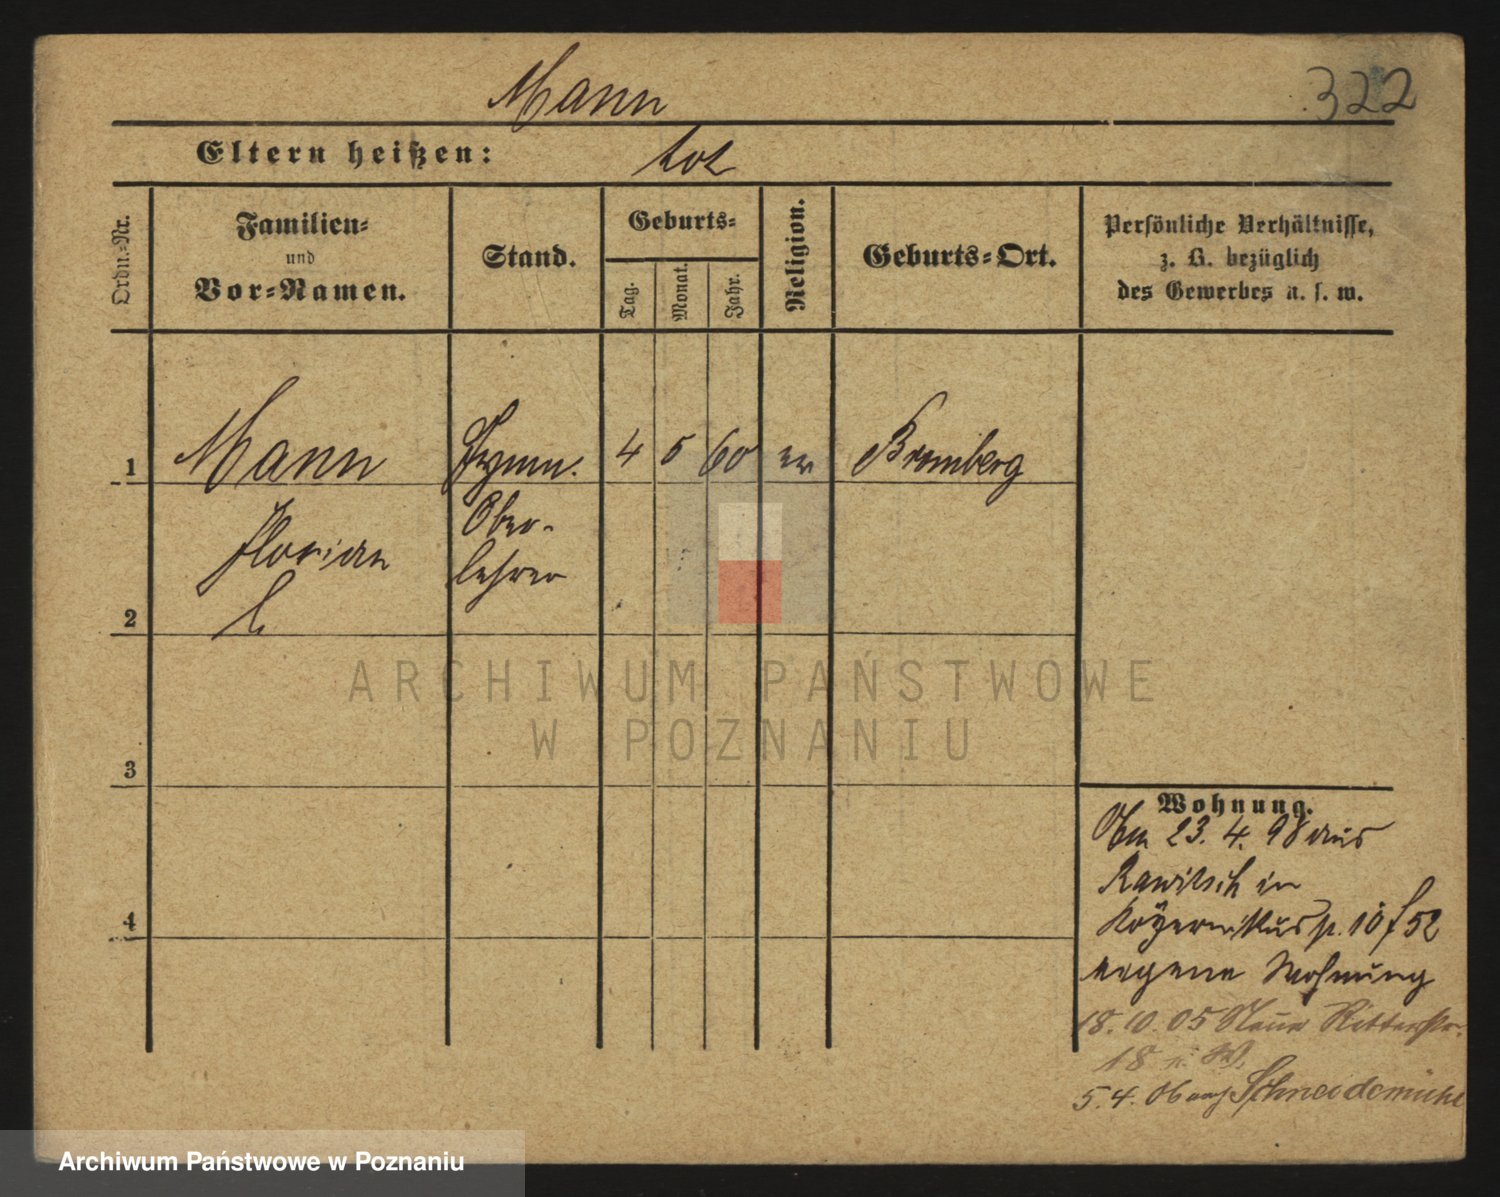 Mann
322
Eltern heißen: tot
Ordn.-Nr.
Familien-
und
Vor-Namen.
Stand.
Geburts-
Tag.
Monat.
Jahr.
Religion.
Geburts-Ort.
Persönliche Verhältnisse,
z. B. bezüglich
des Gewerbes u. s. w.
1 Mann Gymn. 4 5 60 ev Bromberg
Florian Ober-
lehrer
2
ARCHIWUM PAŃSTWOWE
W POZNANIU
3
Wohnung.
23. 4. 98 aus
Rawitsch in
52
4
eigene Wohnung
18. 10. 05 Neue Ritterstr.
18 W.
5. 4. 06 nach Schneidemühl
Archiwum Państwowe w Poznaniu